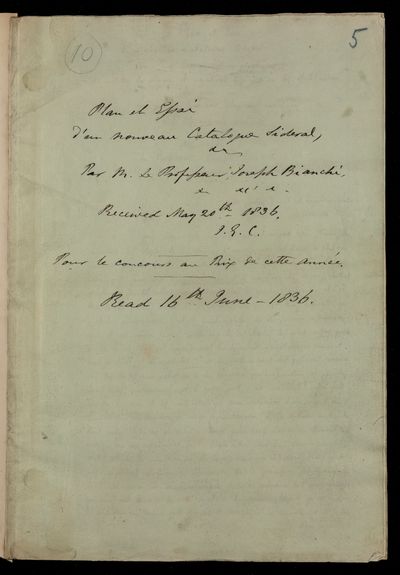 10
5
Plan et Essai
d'un nouveau Catalogue Sideral,
Par M. Le Professeur Joseph Bianchi.
Received May 20th - 1836.
J.G.C.
Pour le concours au Prix de cette Année.
Read 16th June - 1836.